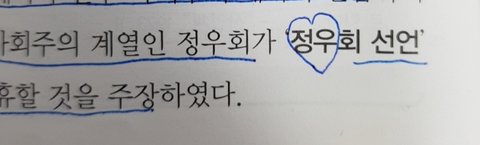 사회주의 계열인 정우회가 '정우회 선언'
휴할 것을 주장하였다.